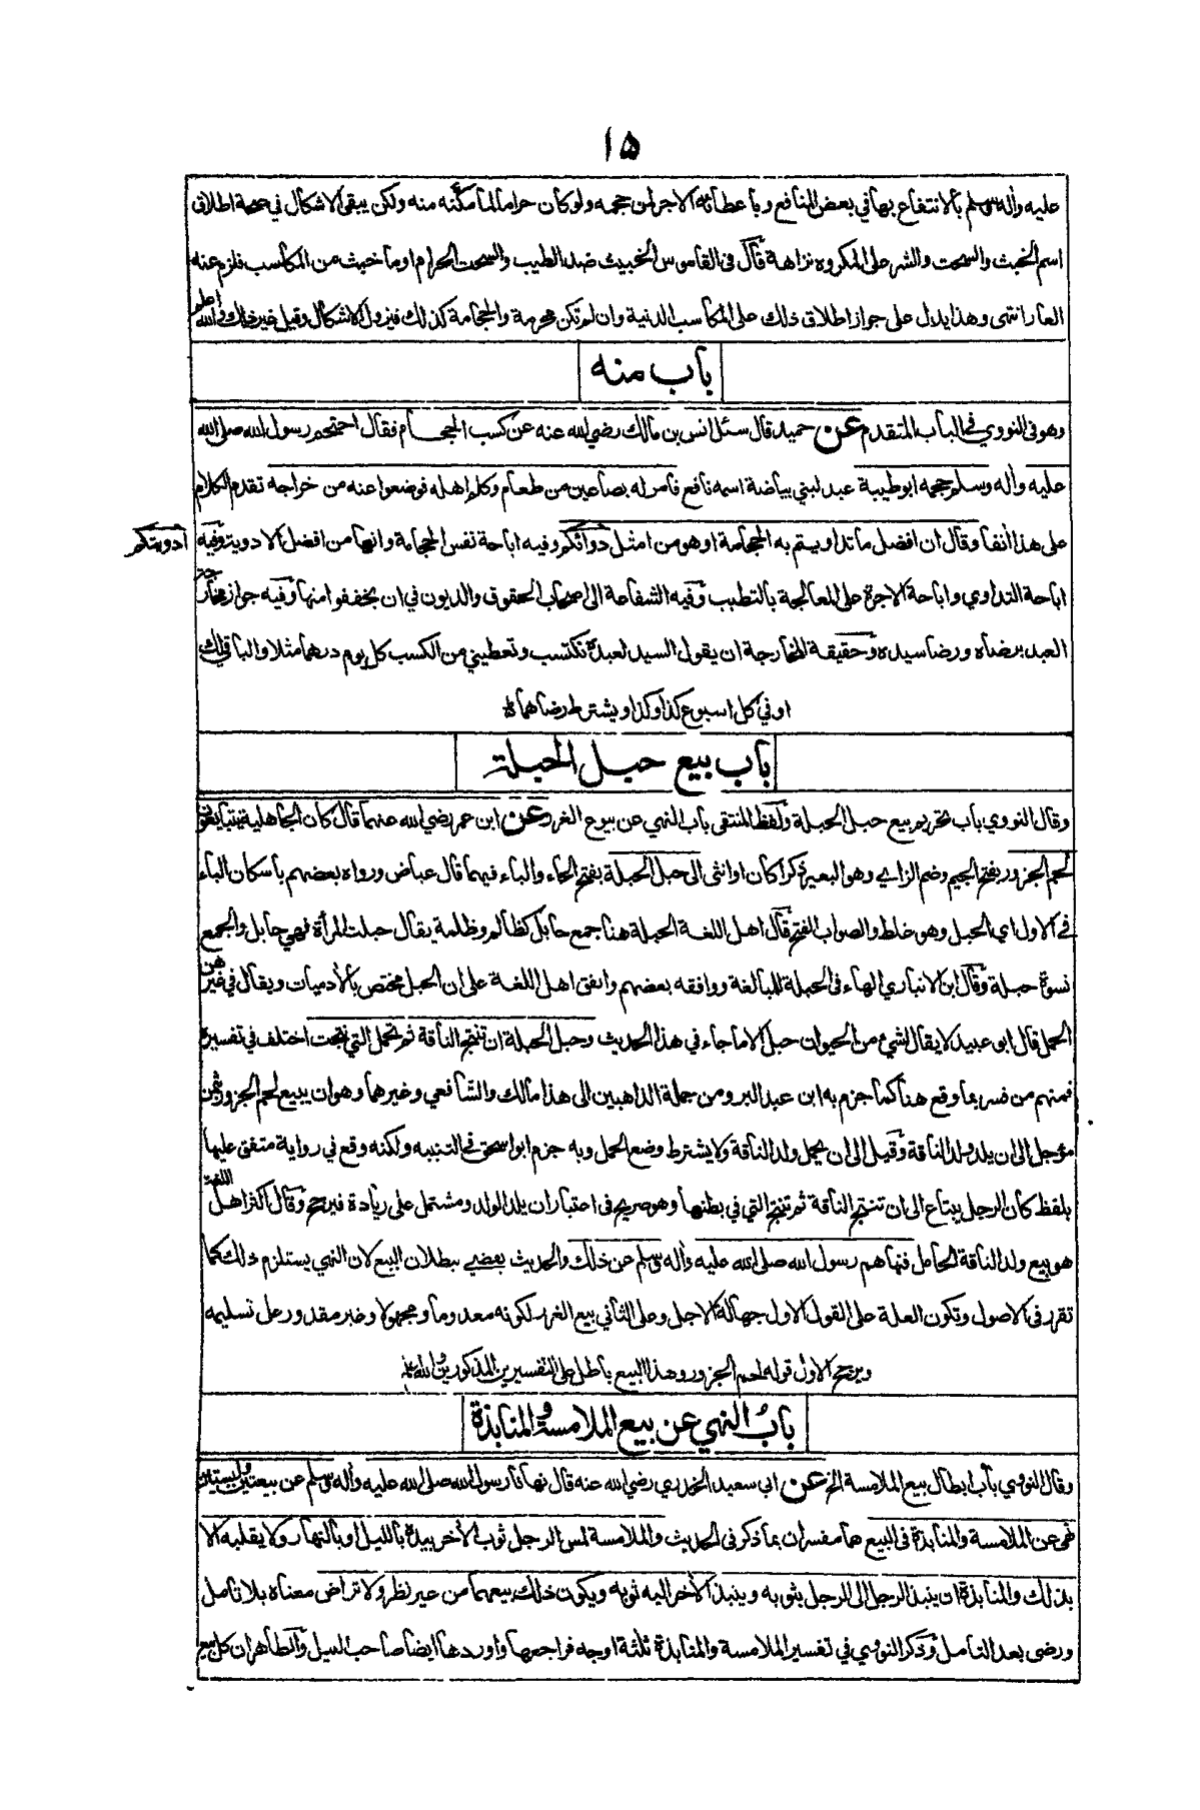 ١٥
عليه وأله وسلم بالانتفاع بها في بعض المنافع وباعطائه الاجر لمن حجمه ولو كان حراما لما مكنه منه ولكن يبقى الاشكال في صحة اطلاق
اسم الخبث والسحت والشر على المكروه نزاهة قال في القاموس الخبيث ضد الطيب والسحت الحرام او ما خبث من المكاسب فلزم عنه
العار انتهى وهذا يدل على جواز اطلاق ذلك على المكاسب الدنية وان لم تكن محرمة والحجامة كذلك فيزول الاشكال وقيل غير ذلك والله اعلم
باب منه
وهو في النووي في الباب المتقدم عن حميد قال سئل انس بن مالك رضي الله عنه عن كسب الحجام فقال احتجم رسول الله صلى الله
عليه وأله وسلم حجمه ابو طيبة عبد لبني بياضة اسمه نافع فامر له بصاعين من طعام وكلم اهله فوضعوا عنه من خراجه تقدم الكلام
على هذا أنفا وقال ان افضل ما تداويتم به الحجامة او هو من امثل دوائكم وفيه اباحة نفس الحجامة وانها من افضل الادوية وفيه
أدويتكم
اباحة التداوي واباحة الاجرة على المعالجة بالتطبب وفيه الشفاعة الى اصحاب الحقوق والديون في ان يخففوا منها وفيه جواز مخارجة
العبد برضاه ورضا سيده وحقيقة المخارجة ان يقول السيد لعبده تكتسب وتعطيني من الكسب كل يوم درهما مثلا والباقي لك
او في كل اسبوع كذا وكذا ويشترط رضاهما
باب بيع حبل الحبلة
وقال النووي باب تحريم بيع حبل الحبلة ولفظ المنتقى باب النهي عن بيوع الغرر عن ابن عمر رضي الله عنهما قال كان الجاهلية يتبايعون
لحم الجزور بفتح الجيم وضم الزاي وهو البعير ذكرا كان او انثى الى حبل الحبلة بفتح الحاء والباء فيهما قال عياض ورواه بعضهم باسكان الباء
في الاول اي الحبل وهو غلط والصواب الفتح قال اهل اللغة الحبلة هنا جمع حابل كظالم وظلمة يقال حبلت المرأة فهي حابل والجمع
نسوة حبلة وقال ابن الانباري الهاء في الحبلة للمبالغة ووافقه بعضهم واتفق اهل اللغة على ان الحبل مختص بالأدميات ويقال في غيرهن
الحمل قال ابو عبيد لا يقال لشيء من الحيوان حبل الا ما جاء في هذا الحديث وحبل الحبلة ان تنتج الناقة ثم تحمل التي نتجت اختلف في تفسيره
فمنهم من فسر بما وقع هنا كما جزم به ابن عبد البر ومن جملة الذاهبين الى هذا مالك والشافعي وغيرهما وهو ان يبيع لحم الجزور بثمن
مؤجل الى ان يلد ولد الناقة وقيل الى ان يحمل ولد الناقة ولا يشترط وضع الحمل وبه جزم ابو اسحق في التنبيه ولكنه وقع في رواية متفق عليها
بلفظ كان الرجل يبتاع الى ان تنتج الناقة ثم تنتج التي في بطنها وهو صريح في اعتبار ان يلد الولد ومشتمل على زيادة فيرجح وقال اكثر اهل اللغة
هو بيع ولد الناقة الحامل فنهاهم رسول الله صلى الله عليه وأله وسلم عن ذلك والحديث يقضي ببطلان البيع لان النهي يستلزم ذلك كما
تقرر في الاصول وتكون العلة على القول الاول جهالة الاجل وعلى الثاني بيع الغرر لكونه معدوما ومجهولا وغير مقدور على تسليمه
ويرجح الاول قوله لحم الجزور وهذا البيع باطل على التفسيرين المذكورين والله اعلم
باب النهي عن بيع الملامسة والمنابذة
وقال النووي باب ابطال بيع الملامسة الخ عن ابي سعيد الخدري رضي الله عنه قال نهانا رسول الله صلى الله عليه وأله وسلم عن بيعتين ولبستين
نهى عن الملامسة والمنابذة في البيع هما مفسران بما ذكر في الحديث والملامسة لمس الرجل ثوب الأخر بيده بالليل او بالنهار ولا يقلبه الا
بذلك والمنابذة ان ينبذ الرجل الى الرجل بثوبه وينبذ الأخر اليه ثوبه ويكون ذلك بيعهما من غير نظر ولا تراض معناه بلا تأمل
ورضى بعد التأمل وذكر النووي في تفسير الملامسة والمنابذة ثلثة اوجه فراجعها واوردها ايضا صاحب السيل والظاهر ان كل بيع